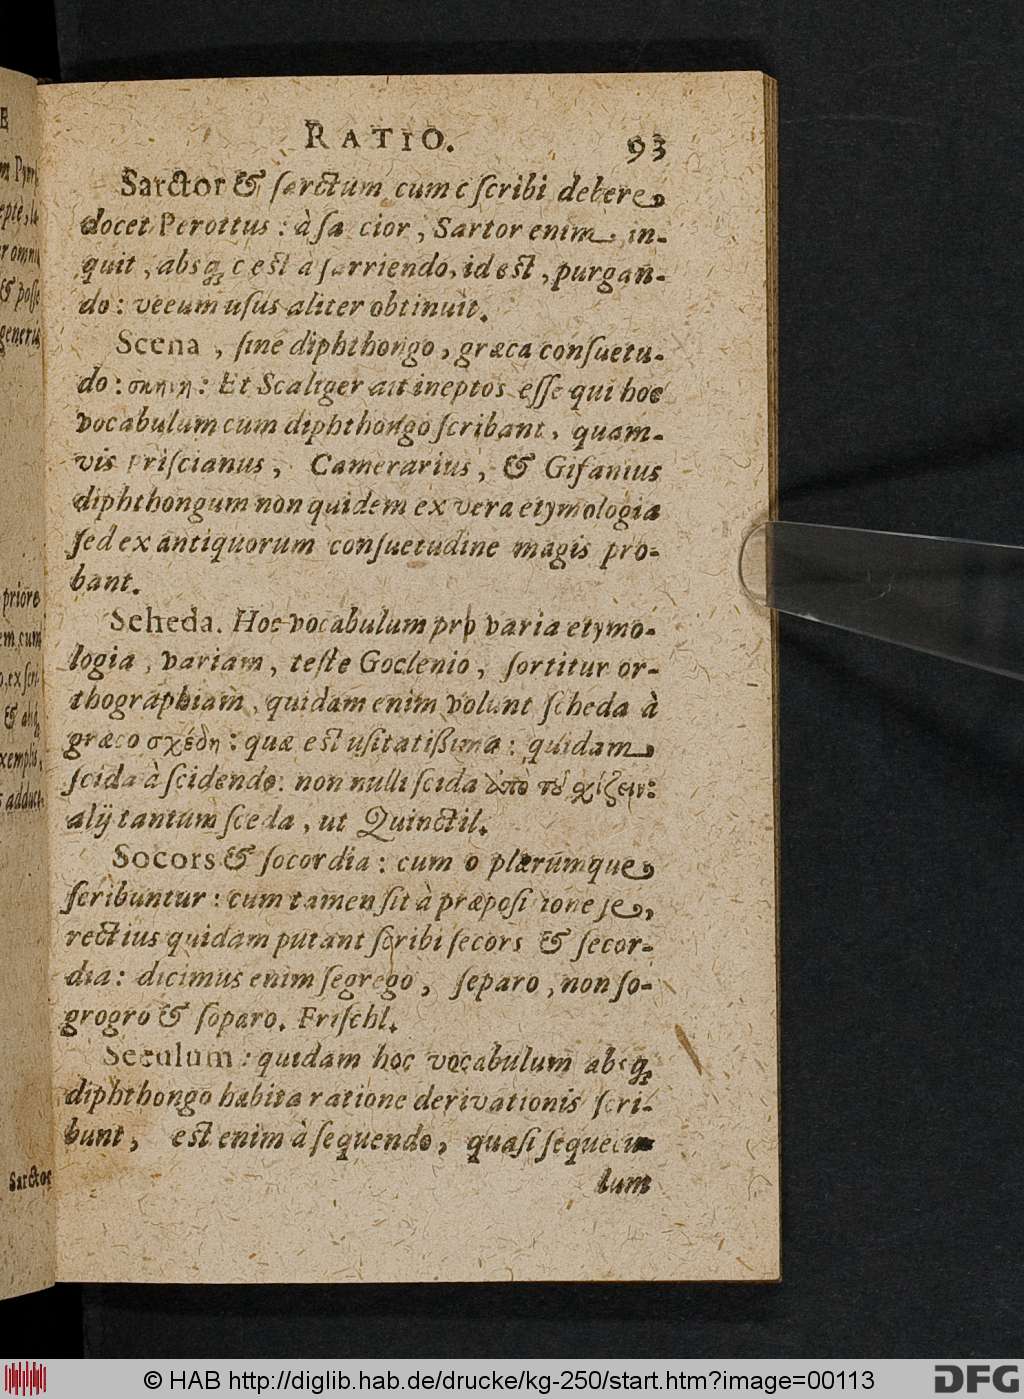 RATIO. 93
Sarctor & ſarctum cum c ſcribi debere,
docet Perottus: à ſa cior, Sartor enim, in-
quit, absq; c est a ſarriendo, id est, purgan-
do: verum uſus aliter obtinuit.
Scena, ſine diphthongo, græca conſuetu-
do: σκηνη: Et Scaliger ait ineptos eſſe qui hoc
vocabulum cum diphthongo ſcribant, quam-
vis Priſcianus, Camerarius, & Gifanius
diphthongum non quidem ex vera etymologia
ſed ex antiquorum conſuetudine magis pro-
bant.
Scheda. Hoc vocabulum pro varia etymo-
logia, variam, teſte Goclenio, ſortitur or-
thographiam, quidam enim volunt ſcheda à
græco σχέδη: quæ est uſitatiſſima: quidam,
ſcida à ſcidendo: non nulli ſcida ἀπὸ τοῦ χίζειν:
alij tantum ſceda, ut Quinctil.
Socors & ſocordia: cum o plerumque,
ſcribuntur: cum tamen ſit à præpoſitione ſe,
rectius quidam putant ſcribi ſecors & ſecor-
dia: dicimus enim ſegrego, ſeparo, non ſo-
grogro & ſoparo. Friſchl.
Seculum: quidam hoc vocabulum absq;
diphthongo habita ratione derivationis ſcri-
bunt, est enim à ſequendo, quaſi ſequecu-
lum
E
priore
em cum
& poſſe
generis
Sarctor
© HAB http://diglib.hab.de/drucke/kg-250/start.htm?image=00113
DFG